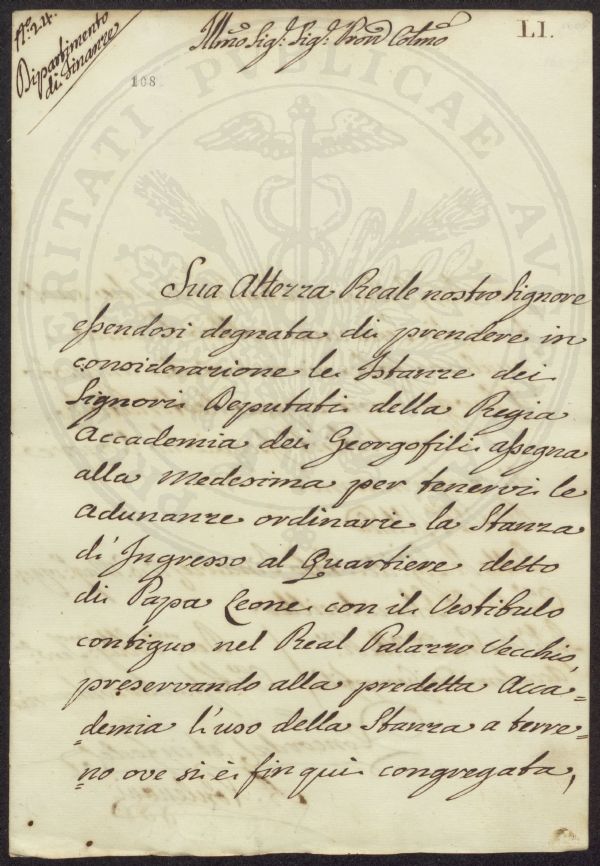 N.º 24.
Dipartimento
di Finanze
Illmo Sig.e Sig.e Pron Colmo
LI.
108
Sua Altezza Reale nostro Signore
essendosi degnata di prendere in
considerazione le Istanze dei
Signori Deputati della Regia
Accademia dei Georgofili assegna
alla Medesima per tenervi le
adunanze ordinarie la Stanza
d'Ingresso al Quartiere detto
di Papa Leone con il Vestibulo
contiguo nel Real Palazzo Vecchio,
preservando alla predetta Acca=
=demia l'uso della Stanza a terre=
=no ove si è fin qui congregata,
PROSPERITATI PVBLICAE AVGENDAE